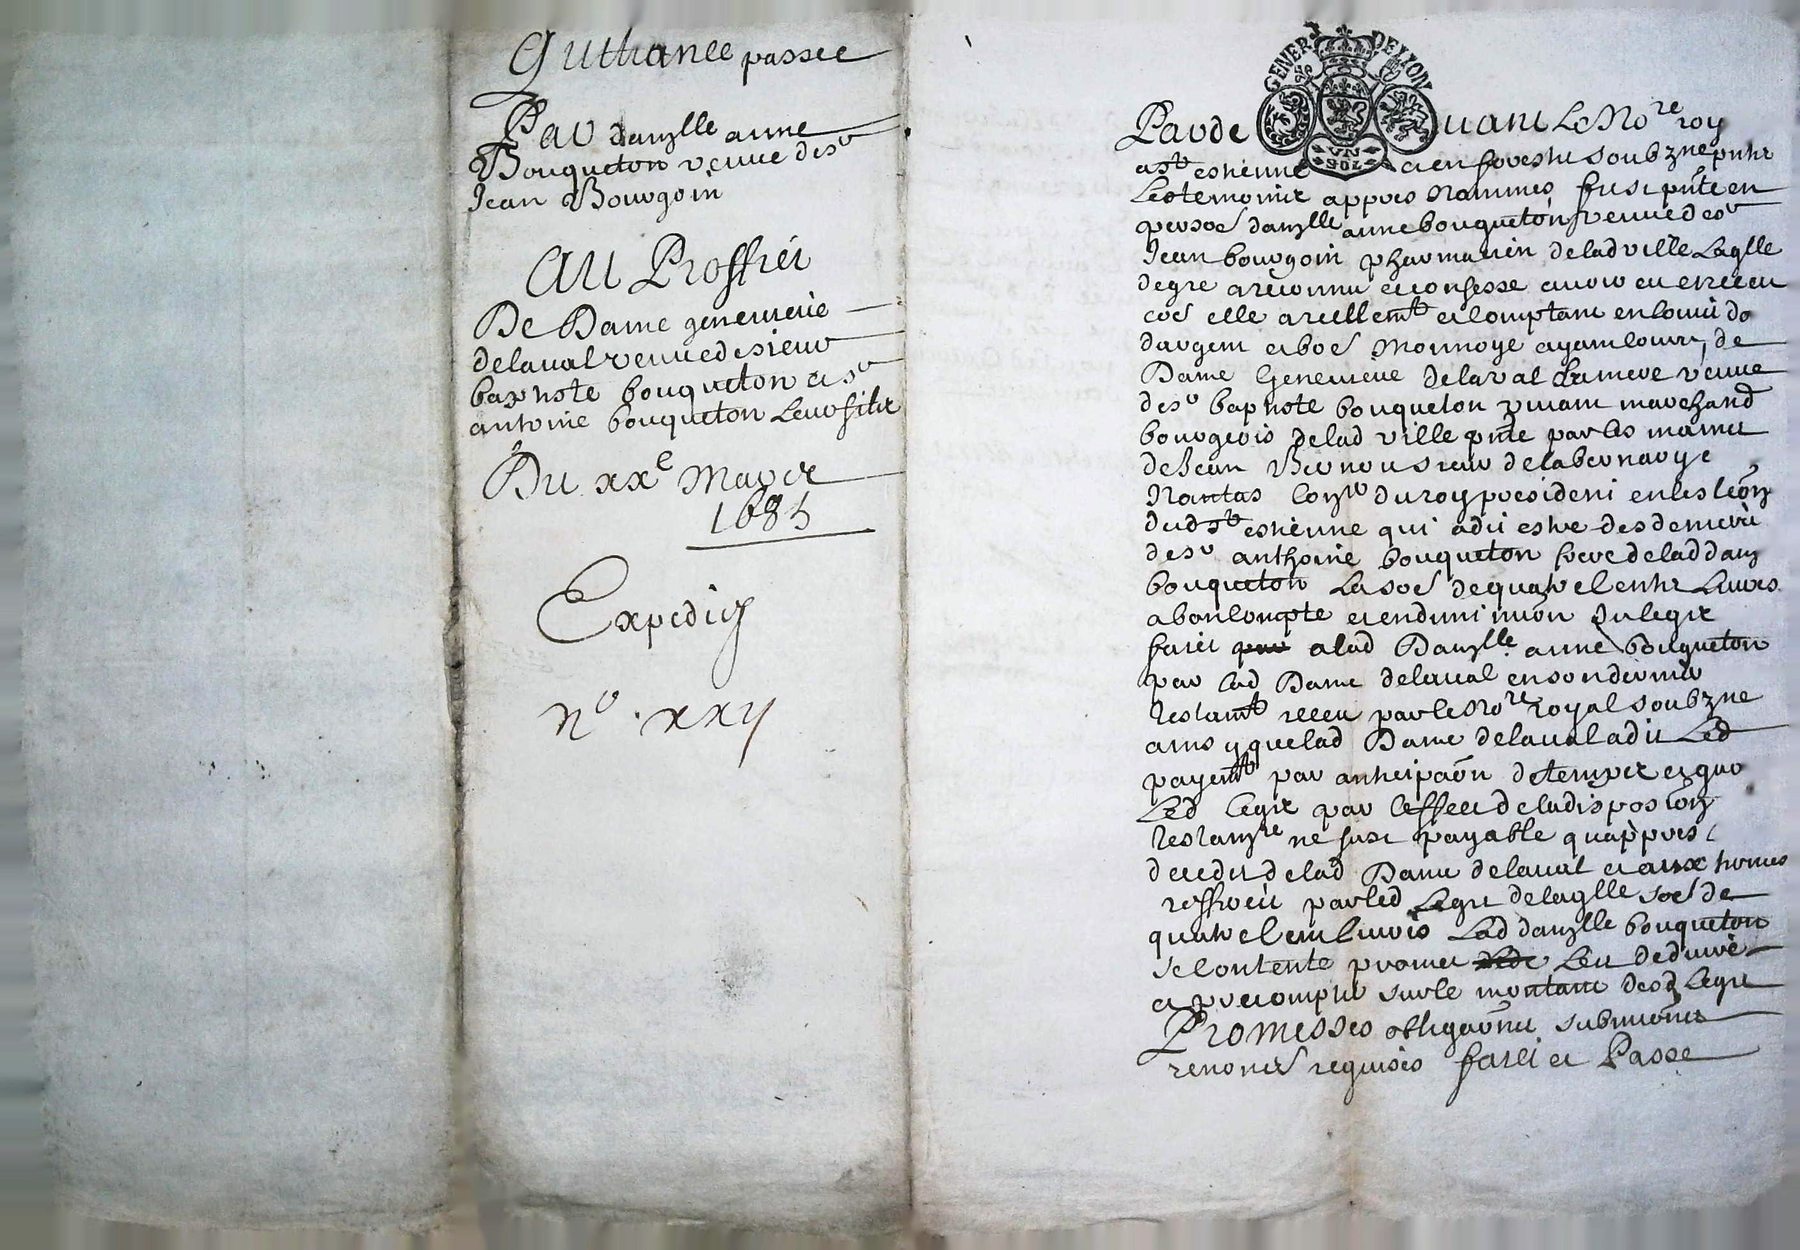 Quithance passee
Par dauzlle anne
Bouqueton veuve de sr
Jean Bourgoin
Au Proffict
De Dame genevieve
delaval veuve de sieur
baptiste bouqueton et sr
antoine bouqueton leur filz
Du xxe Mars
1685
Expedie
No. xxij
GENER DE LYON
VN SOL
Par de vant Le Nore roy
a St estienne et en forestz soubzne
Les temoins appres nommes fust pnte en
persoe dauzlle anne bouqueton veuve de sr
Jean bourgoin pharmacien de lad ville Laqlle
de gre a reconnu et confesse avoir eu et receu
coe elle a reellemt et comptant en Louis do
dargent et boe Monnoye ayant cours, de
Dame Genevieve delaval sa mere veuve
de sr baptiste bouqueton vivant marchand
bourgeois de lad ville pnte par les mains
de Jean Bernou sieur de la bernarye
Nantas Conser du roy president en leslection
dud St estienne qui a dit estre des deniers
de sr anthoine bouqueton frere de lad dauz
bouqueton La soe de quatre Centz Livres
a bon Compte et en diminuon du legat
faict a lad Dauzlle anne bouqueton
par lad Dame delaval en son dernier
testamt receu par le Nore royal soubzne
ains que lad Dame delaval a dit Led
payemt par anticipaon de temps et quo
Led legat par leffect de la disposion
testamre ne fust payable quappres
deceds de lad Dame delaval et aux
par led Legat de laqlle soe de
quatre Cent Livres Lad dauzlle bouqueton
se Contente promet Les deduire
et precompter sur le montant desd Legat
Promesses obligaons submions
renones requises faict et Passe